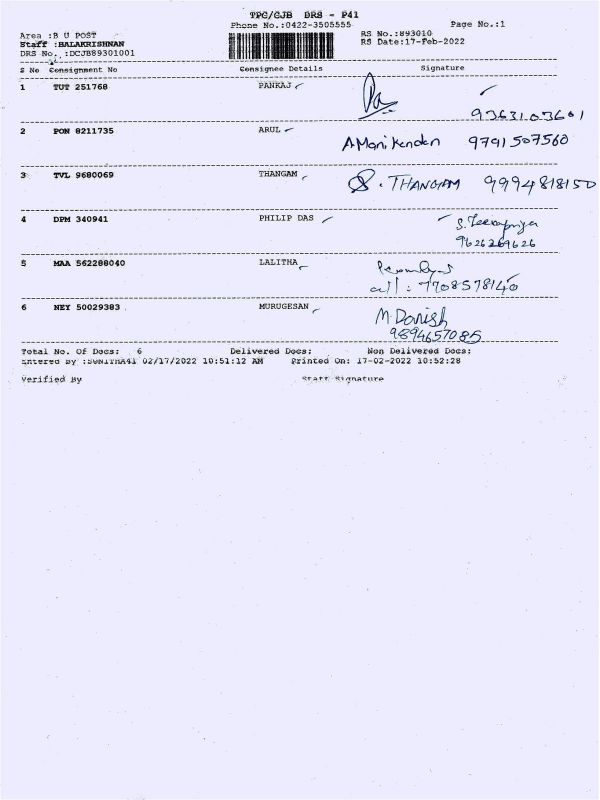 TPC/CJB DRS - P41
Phone No.:0422-3505555 Page No.:1
Area :B U POST
RS No.:893010
Staff :BALAKRISHNAN
RS Date:17-Feb-2022
DRS No. :DCJB89301001
S No Consignment No Consignee Details Signature
1 TUT 251768 PANKAJ
9363103601
2 PON 8211735 ARUL
A Manikandan 9791507560
3 TVL 9680069 THANGAM
S. THANGAM 9994818150
4 DPM 340941 PHILIP DAS
9626269626
5 MAA 562288040 LALITHA
cell : 7708578140
6 NEY 50029383 MURUGESAN
M. Danish
9894657085
Total No. Of Docs: 6 Delivered Docs: Non Delivered Docs:
Entered By :SUNITHA41 02/17/2022 10:51:12 AM Printed On: 17-02-2022 10:52:28
Verified By Staff Signature